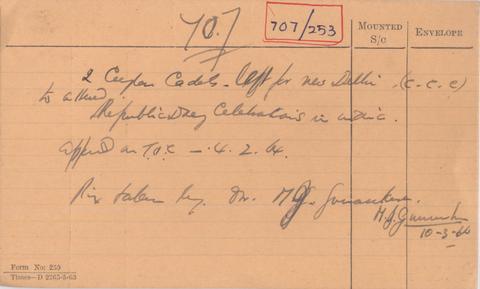 707
707/253
MOUNTED S/c
ENVELOPE
2 Ceylon Cadets left for New Delhi (C.C.C)
to attend
Republic Day Celebrations in India.
appeared on T.O.C - 4.2.64.
Pix taken by. Mr. M.J.
M.J.
10-3-64
Form No: 259
Times—D 2265-5-63